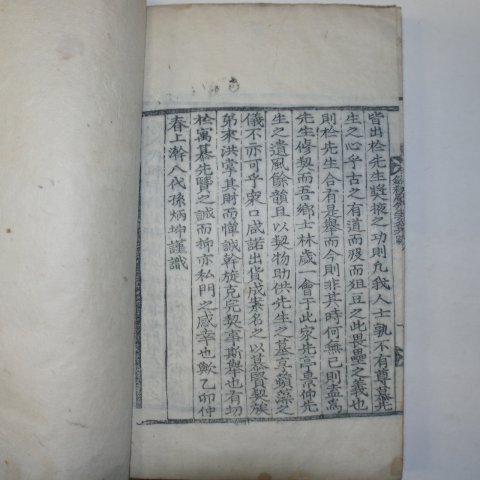 皆出於先生奬掖之功則凡我人士孰不有尊慕先
生之心乎古之有道而歿而俎豆之此畏壘之義也
則於先生合有是擧而今則非其時何無已則盍爲
先生修契而吾鄕士林歲一會于此家先亭景仰先
生之遺風餘韻且以契物助供先生之墓享蘋藻之
儀不亦可乎衆口咸諾出貨成案名之以慕賢契族
弟來洪掌其財而憚誠幹旋克完契事斯擧也有切
於寓慕先賢之誠而抑亦私門之感幸也歟乙卯仲
春上澣八代孫炳坤謹識